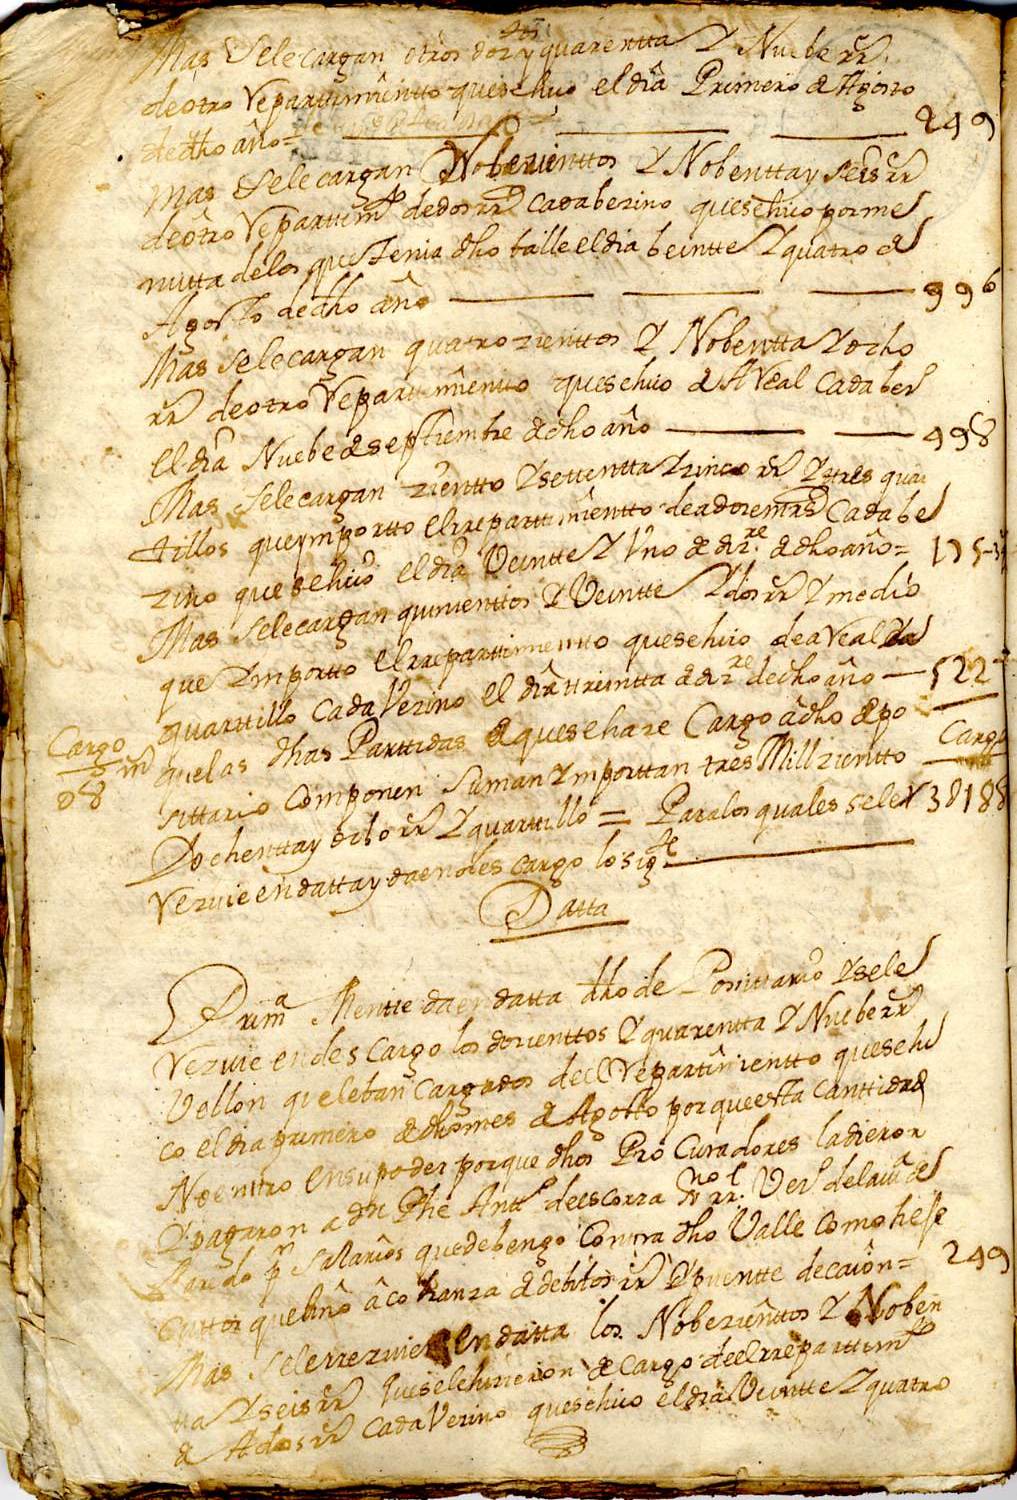 Mas Selecargan otros doz tos y quarentta Y Nuebe rr.
deotro Repartimiento quesehiço el dia Primero de Agosto
dedho año= 249
Mas Selecargan Nobezienttos Y Nobenttay seis rr
deotro Repartim to dedos rr s Cadabezino quesehiço porme
mitta delos que Tenia dho balle eldia beintte Y quatro de
Agosto dedho año 996
Mas selecargan quatrozienttos Y Nobentta Y ocho
rr deotro Repartimiento quesehiço de A Real Cadabez
El dia Nuebe de septiembre de dho año 498
Mas selecargan zientto Ysettentta Yzinco rr Y tres quar
tillos queymportto elrrepartimientto deadoze mrs Cadabe
zino quesehiço el dia Veintte Y Uno de dize. de dho año=
Mas selecargan quinienttos Y Veintte Y dos rr Y medio
que Ymportto elrrepartimientto quesehiço deaReal Y
quarttillo Cada Vezino el dia ttreintta de dize dedho año 522
quelas dhas Parttidas de quesehaze Cargo a dho depo
Cargo
sittario Componen Suman Ymporttan tres Mill zientto
Cargo
Y ochenttay ocho rr Y quarttillo = Paralos quales sele 3188
Rezuieendattay daendescargo losigte
Datta
Prima Mentte daendatta dho de Possitario Ysele
Rezuie endescargo los dozienttos Y quarentta Y Nuebe rr
Vellon queleban Cargados del Repartimientto quesehi
ço el dia primero de dho mes de Agosto por queesta canttidad
Noentro ensupoder porque dhos Procuradores ladieron
Ypagaron a dn Phe Antt deescorza Vez delavª de
Laredo pr salarios quedebengo Contra dho Valle Comohese
cuttor quebino a cobranza de debitos rr Y puentte decaion= 249
Mas selerrezuien endatta los Nobezienttos Y Noben
tta Y seis rr queselehizieron de Cargo deelrrepartimto
de A dos rr Cada Vezino quesehiço eldia Veintte Y quatro